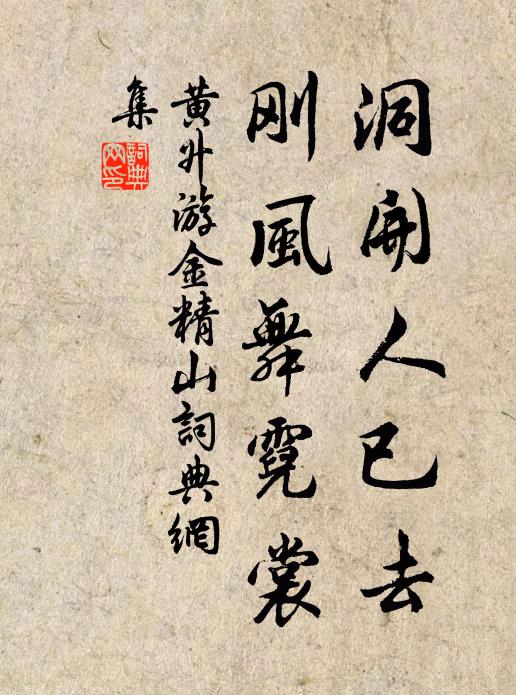 洞開人已去
刚風舞霓裳
黄升游金精山詞典網
集
詞典
网印